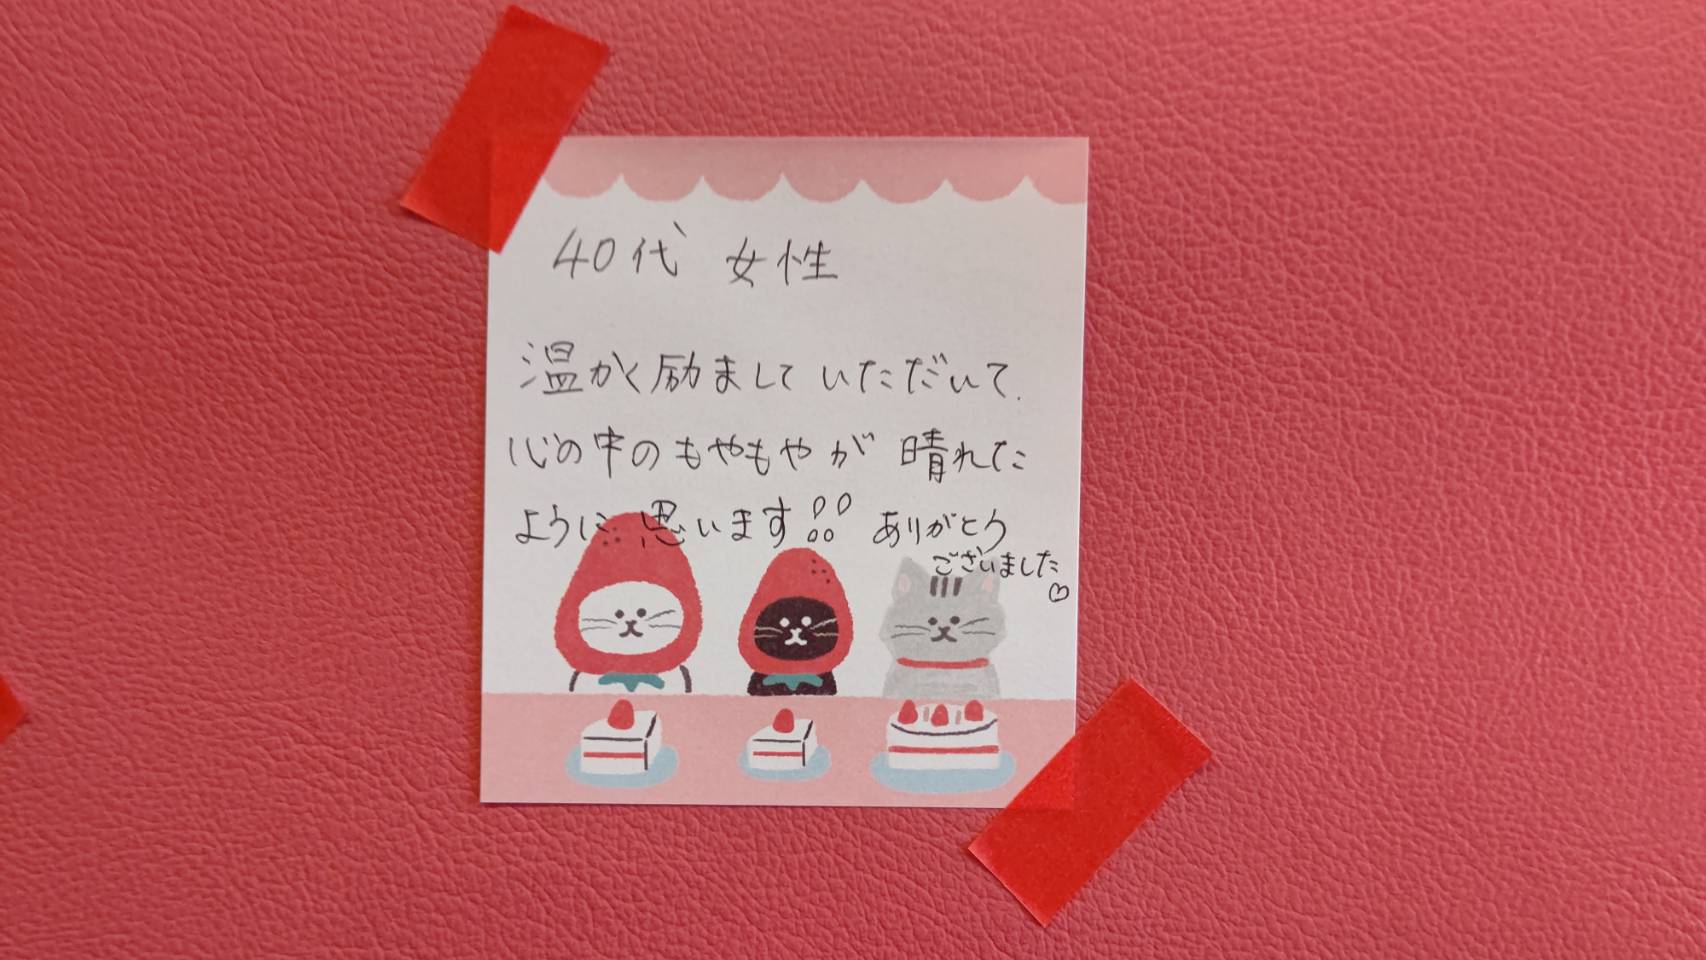 40代 女性
温かく励まして いただいて、
心の中のもやもやが 晴れた
ように 思います!! ありがとう
ございました♡